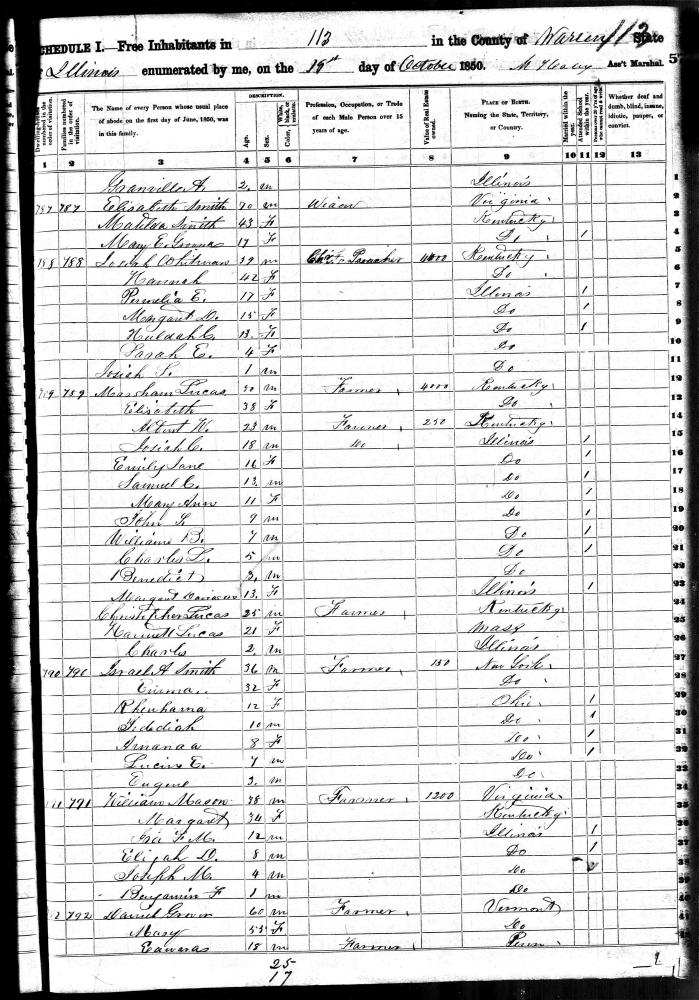 113
SCHEDULE I.—Free Inhabitants in in the County of Warren State
Illinois enumerated by me, on the 15th day of October 1850. Ass't Marshal.
113
DESCRIPTION.
Dwelling-houses numbered in the order of visitation.
Families numbered in the order of visitation.
The Name of every Person whose usual place of abode on the first day of June, 1850, was in this family.
Age.
Sex.
White, black, or mulatto.
Color,
Profession, Occupation, or Trade of each Male Person over 15 years of age.
Value of Real Estate owned.
PLACE OF BIRTH. Naming the State, Territory, or Country.
Married within the year.
Attended School within the year.
Whether deaf and dumb, blind, insane, idiotic, pauper, or convict.
1 2 3 4 5 6 7 8 9 10 11 12 13
Granville A. 2 m Illinois 1
787 787 Elisabeth Smith 70 m Widow Virginia 2
Matilda Smith 43 F Kentucky 3
Mary E. 17 F Do 1 4
188 788 Josiah Whitman 39 m Preacher 4000 Kentucky 5
Hannah 42 F Do 6
Permelia E. 17 F Illinois 1 7
Margaret D. 15 F Do 1 8
Huldah C. 13 F Do 1 9
Sarah E. 4 F Do 10
Josiah S. 1 m Do 11
789 789 Marsham Lucas 50 m Farmer 4000 Kentucky 12
Elisabeth 38 F Do 13
Albert W. 23 m Farmer 250 Kentucky 14
Josiah C. 18 m do Illinois 1 15
Emily Jane 16 F Do 1 16
Samuel C. 13 m Do 1 17
Mary Ann 11 F Do 1 18
John S. 9 m Do 1 19
William B. 7 m Do 1 20
Charles L. 5 m Do 1 21
Benedict 3 m Do 22
Margaret 13 F Illinois 1 23
Christopher Lucas 25 m Farmer Kentucky 24
Harriett Lucas 21 F Mass 25
Charles 2 m Illinois 26
790 790 Israel A Smith 36 m Farmer 150 New York 27
32 F Do 28
12 F Ohio 1 29
Jedediah 10 m Do 1 30
Amanda 8 F Do 1 31
Lucius E. 7 m Do 1 32
Eugene 3 m Do 33
791 William Mason 38 m Farmer 1200 Virginia 34
Margaret 34 F Kentucky 35
Ira F. M. 12 m Illinois 1 36
Elijah D. 8 m Do 1 37
Joseph M. 4 m Do 38
Benjamin F 1 m Do
2 792 Daniel Grover 60 m Farmer Vermont 40
Mary 55 F Do 41
Edward 18 m Farmer Penn 42
25
17
1